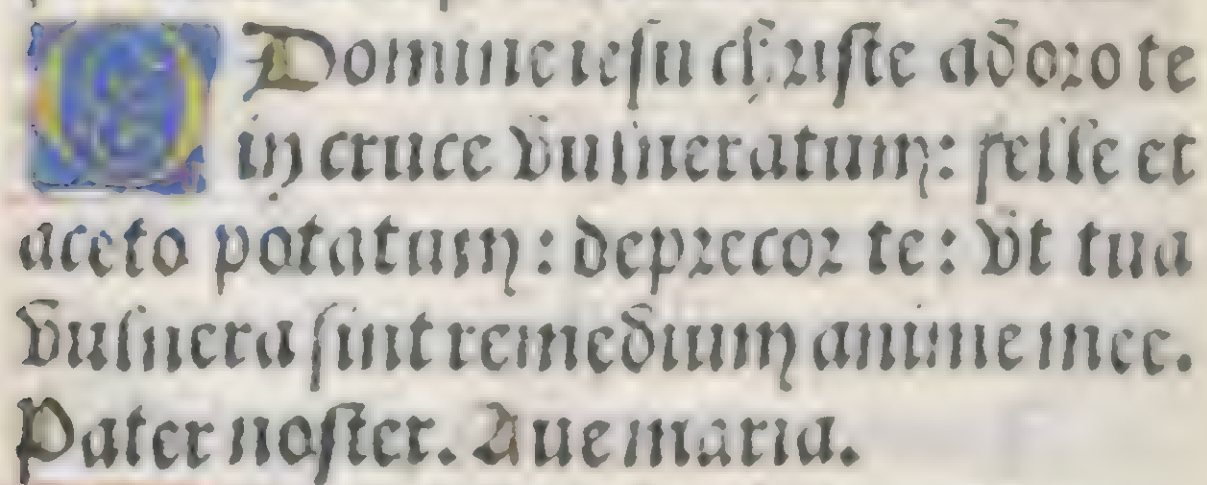 O Domine iesu christe adoro te
in cruce vulneratum: felle et
aceto potatum: deprecor te: vt tua
vulnera sint remedium anime mee.
Pater noster. Aue maria.